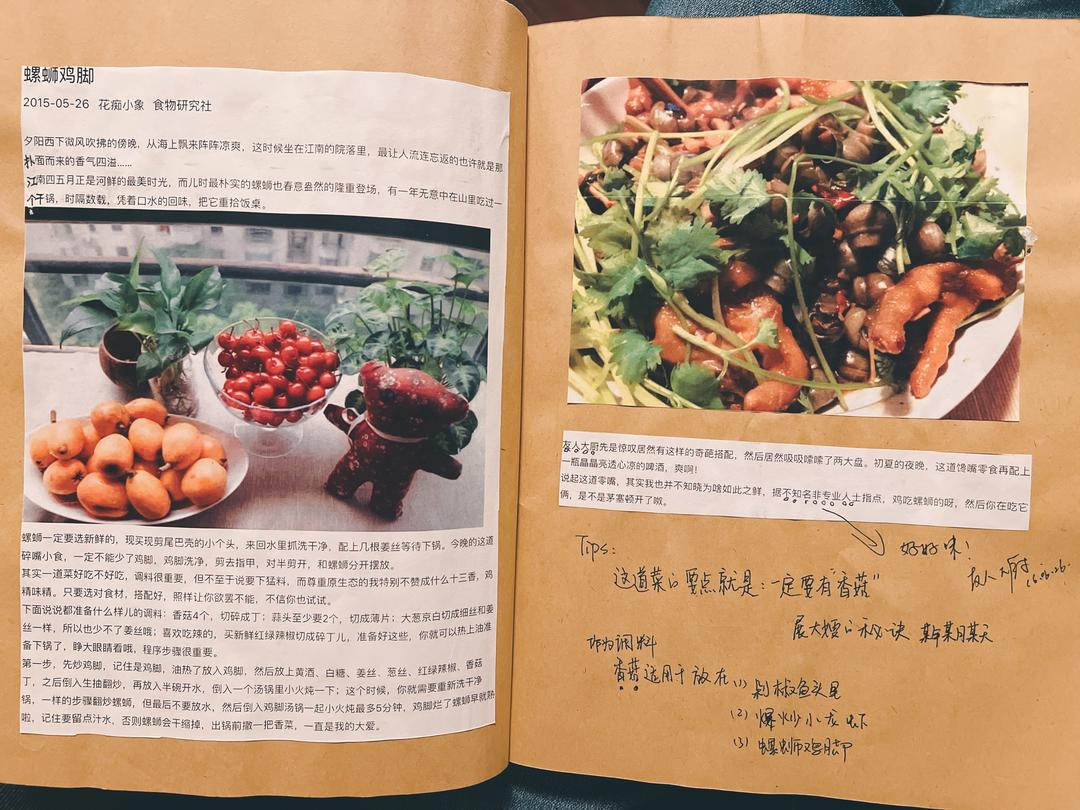 螺蛳鸡脚
2015-05-26 花痴小象 食物研究社
夕阳西下微风吹拂的傍晚，从海上飘来阵阵凉爽，这时候坐在江南的院落里，最让人流连忘返的也许就是那
扑面而来的香气四溢……
江南四五月正是河鲜的最美时光，而儿时最朴实的螺蛳也春意盎然的隆重登场，有一年无意中在山里吃过一
个干锅，时隔数载，凭着口水的回味，把它重拾饭桌。
螺蛳一定要选新鲜的，现买现剪尾巴壳的小个头，来回水里抓洗干净，配上几根姜丝等待下锅。今晚的这道
碎嘴小食，一定不能少了鸡脚，鸡脚洗净，剪去指甲，对半剪开，和螺蛳分开摆放。
其实一道菜好吃不好吃，调料很重要，但不至于说要下猛料，而尊重原生态的我特别不赞成什么十三香，鸡
精味精。只要选对食材，搭配好，照样让你欲罢不能，不信你也试试。
下面说说都准备什么样儿的调料：香菇4个，切碎成丁；蒜头至少要2个，切成薄片；大葱京白切成细丝和姜
丝一样，所以也少不了姜丝哦；喜欢吃辣的，买新鲜红绿辣椒切成碎丁儿，准备好这些，你就可以热上油准
备下锅了，睁大眼睛看哦，程序步骤很重要。
第一步，先炒鸡脚，记住是鸡脚，油热了放入鸡脚，然后放上黄酒、白糖、姜丝、葱丝、红绿辣椒、香菇
丁，之后倒入生抽翻炒，再放入半碗开水，倒入一个汤锅里小火炖一下；这个时候，你就需要重新洗干净
锅，一样的步骤翻炒螺蛳，但最后不要放水，然后倒入鸡脚汤锅一起小火炖最多5分钟，鸡脚烂了螺蛳早就熟
啦，记住要留点汁水，否则螺蛳会干缩掉，出锅前撒一把香菜，一直是我的大爱。
友人大厨先是惊叹居然有这样的奇葩搭配，然后居然吸吸嗦嗦了两大盘。初夏的夜晚，这道馋嘴零食再配上
一瓶晶晶亮透心凉的啤酒，爽啊！
说起这道零嘴，其实我也并不知晓为啥如此之鲜，据不知名非专业人士指点，鸡吃螺蛳的呀，然后你在吃它
俩，是不是茅塞顿开了嗷。
好好味！
友人大厨
Tips：
这道菜的要点就是：一定要有“香菇”
展大嫂的秘诀 某年某月某天
作为调料
香菇适用于放在(1) 剁椒鱼头尾
(2) 爆炒小龙虾
(3) 螺蛳鸡脚